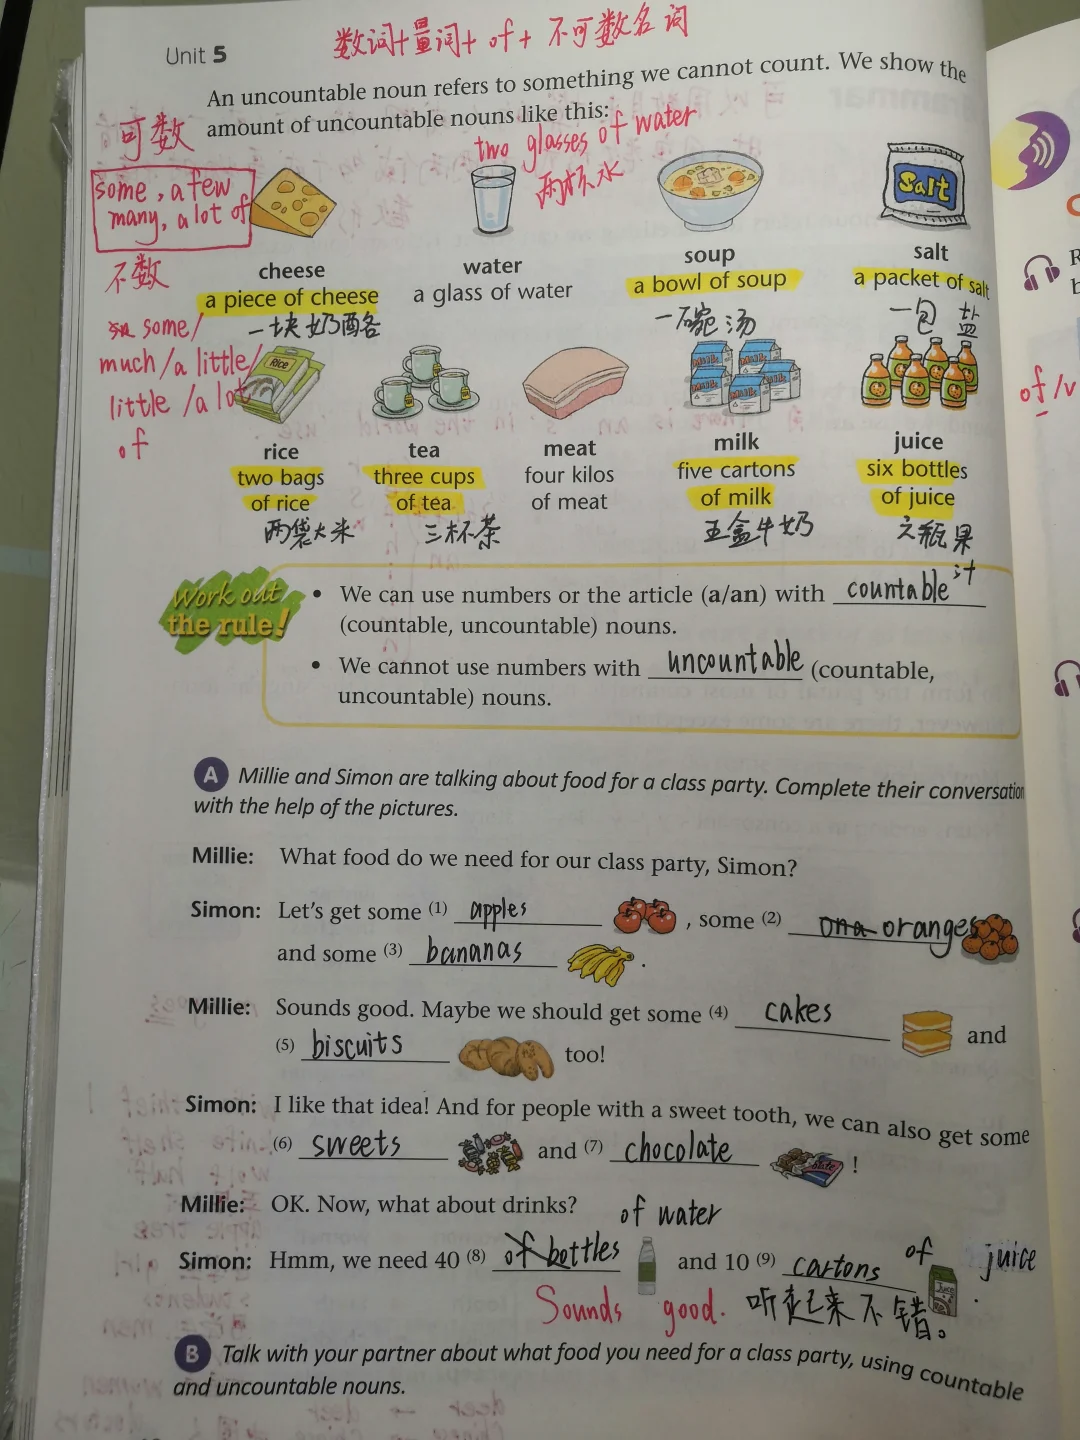 数词+量词+ of + 不可数名词
Unit 5
An uncountable noun refers to something we cannot count. We show the
amount of uncountable nouns like this:
可数
two glasses of water
两杯水
some, a few
many, a lot of
不数
some/
much/a little/
little/a lot
of
Salt
cheese
a piece of cheese
一块奶酪
water
a glass of water
soup
a bowl of soup
一碗汤
salt
a packet of salt
一包 盐
Rice
Milk
rice
two bags
of rice
两袋大米
tea
three cups
of tea
三杯茶
meat
four kilos
of meat
milk
five cartons
of milk
五盒牛奶
juice
six bottles
of juice
六瓶果
汁
of /
Work out
the rule!
• We can use numbers or the article (a/an) with countable
(countable, uncountable) nouns.
• We cannot use numbers with uncountable (countable,
uncountable) nouns.
A Millie and Simon are talking about food for a class party. Complete their conversation
with the help of the pictures.
Millie: What food do we need for our class party, Simon?
Simon: Let's get some (1) apples , some (2) ona oranges
and some (3) bananas .
Millie: Sounds good. Maybe we should get some (4) cakes and
(5) biscuits too!
Simon: I like that idea! And for people with a sweet tooth, we can also get some
(6) sweets and (7) chocolate !
Millie: OK. Now, what about drinks?
of water
Simon: Hmm, we need 40 (8) of bottles and 10 (9) cartons of juice .
Sounds good. 听起来不错。
B Talk with your partner about what food you need for a class party, using countable
and uncountable nouns.